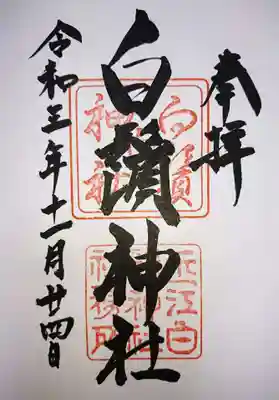 奉拝
白鬚神社
令和三年十一月廿四日
白鬚神社
近江白鬚神社社務所